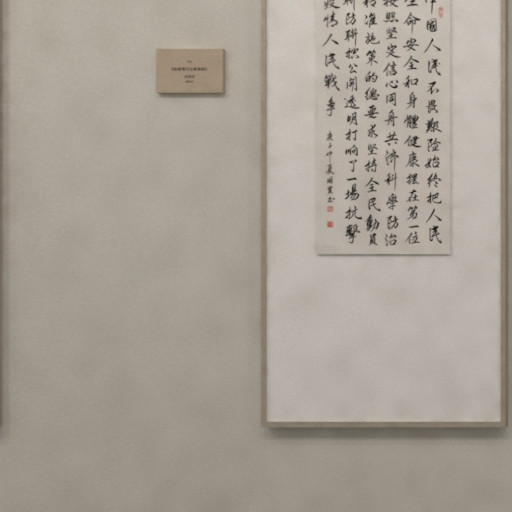 中國人民不畏艱險始終把人民
生命安全和身體健康擺在第一位
按照堅定信心同舟共濟科學防治
精准施策的總要求堅持全民動員
防聯控公開透明打响了一場抗擊
疫情人民戰争
庚子仲夏